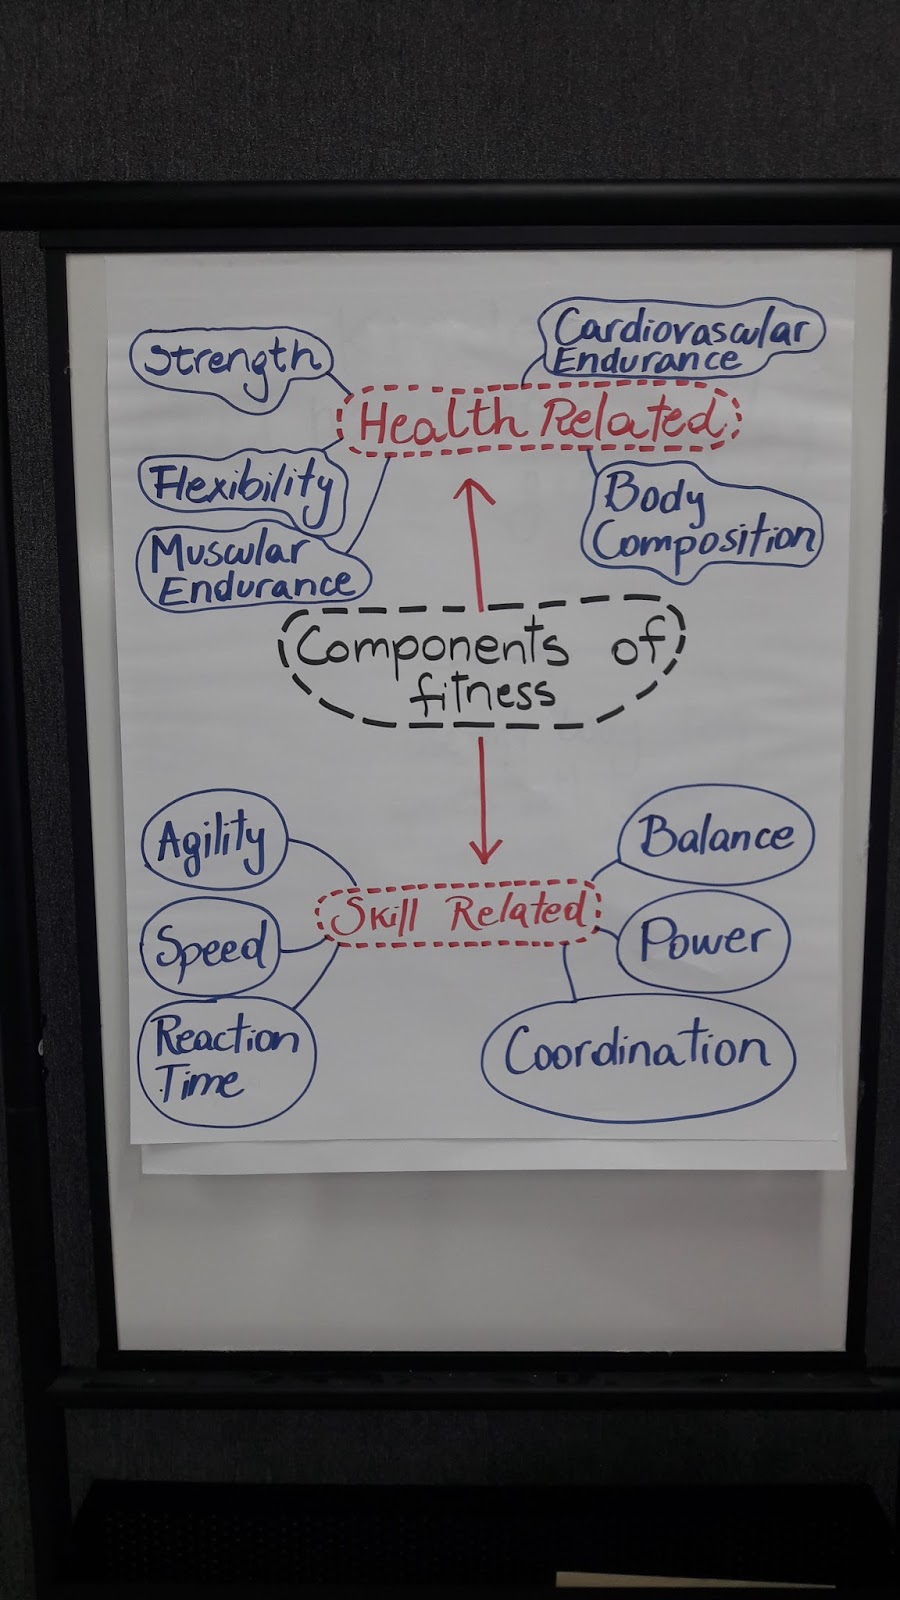 Strength
Cardiovascular
Endurance
Health Related
Flexibility
Body
Composition
Muscular
Endurance
Components of
fitness
Agility
Balance
Skill Related
Speed
Power
Reaction
Time
Coordination